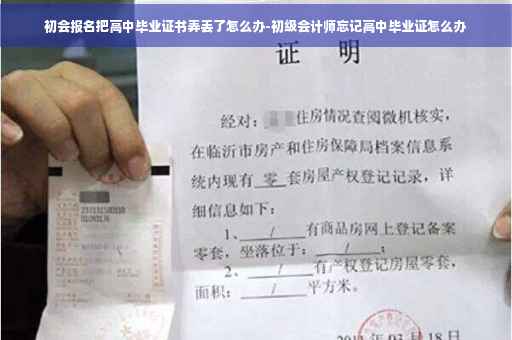 初会报名把高中毕业证书弄丢了怎么办-初级会计师忘记高中毕业证怎么办
证 明
经对：住房情况查阅微机核实，
在临沂市房产和住房保障局档案信息系
统内现有 零 套房屋产权登记记录，详
细信息如下：
1、 / 有商品房网上登记备案
零套，坐落位于： / ；
2、 / 有产权登记房屋零套，
面积： / 平方米。
03月18日